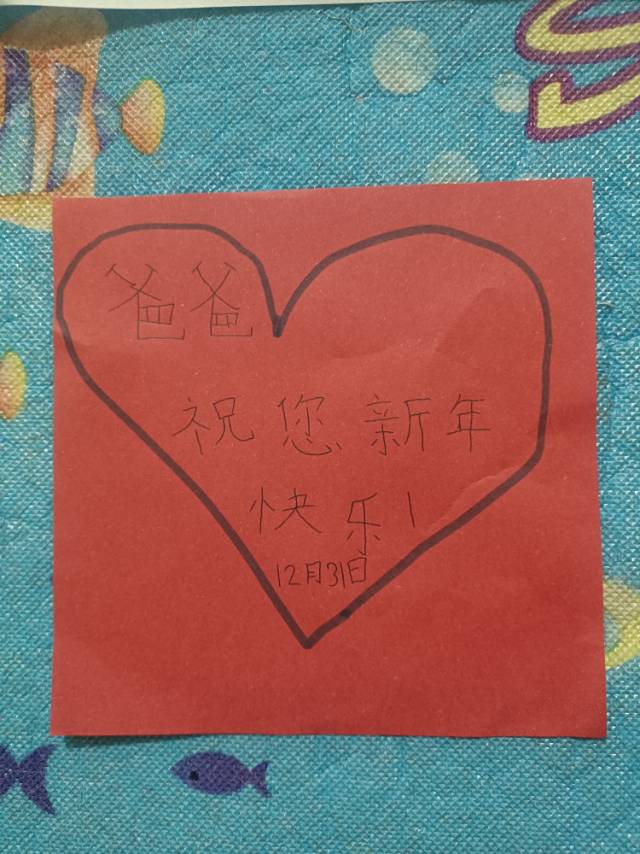 爸爸
祝您新年
快乐！
12月31日
S